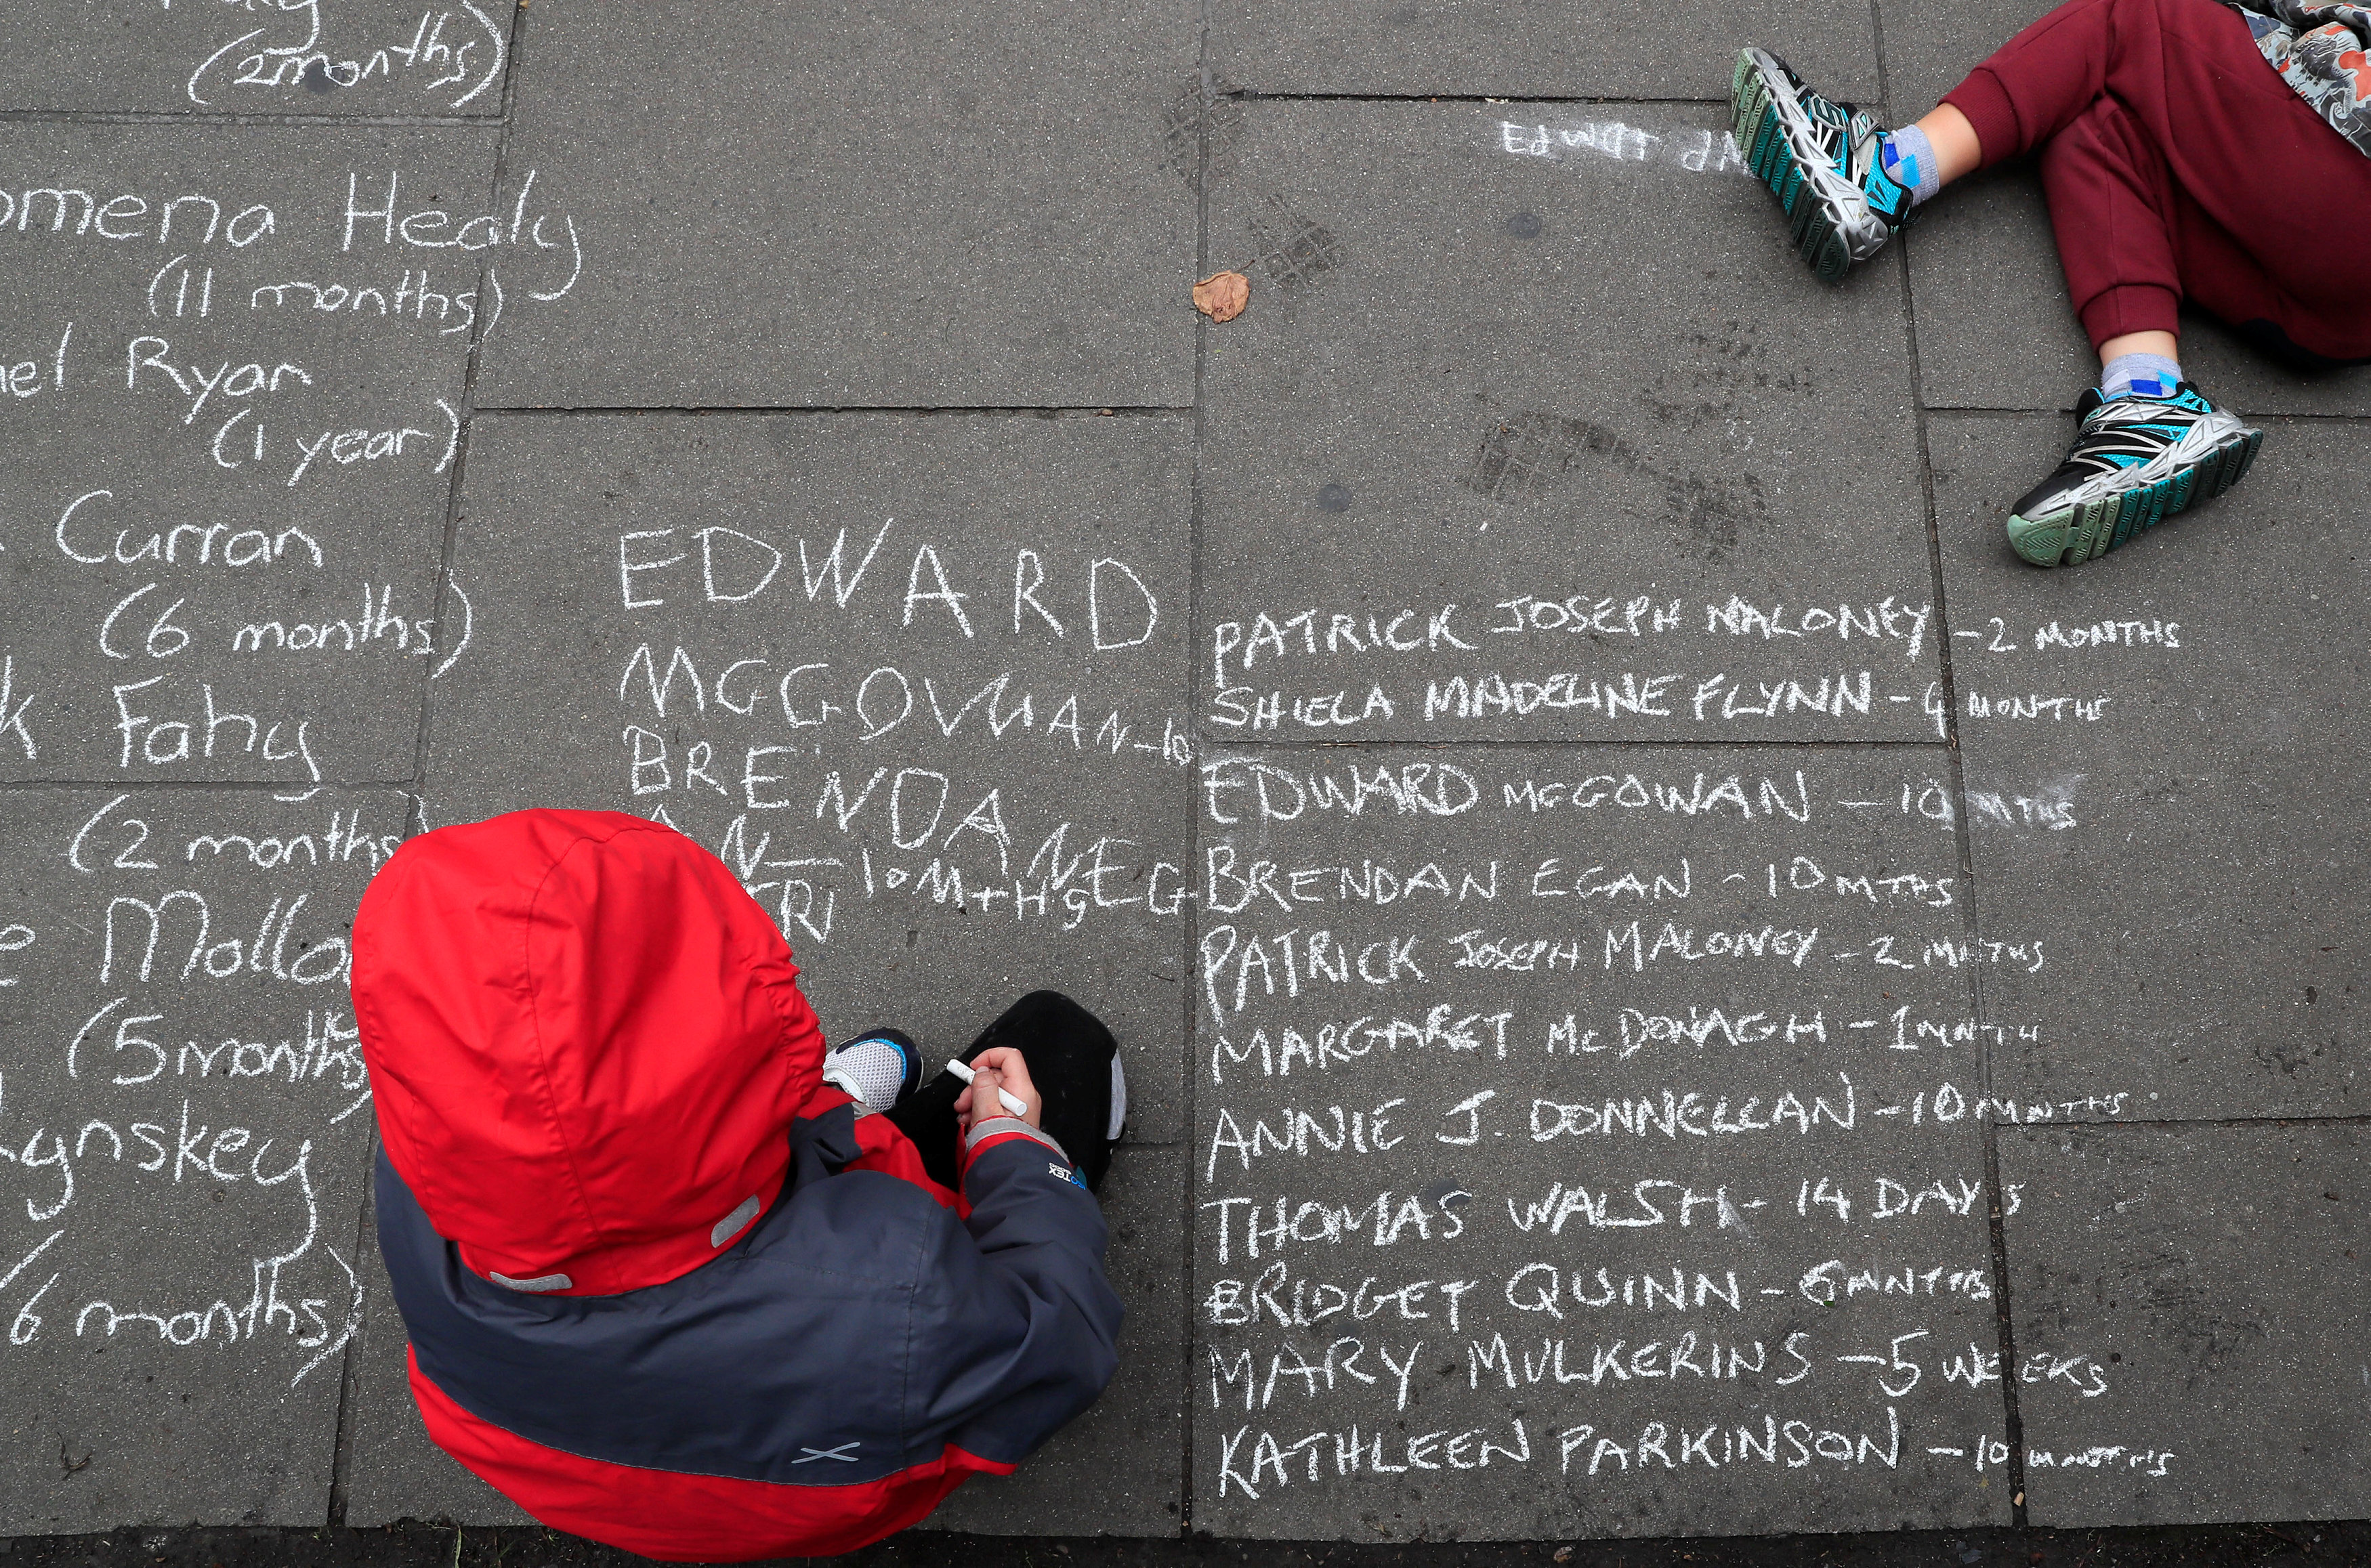 (2 months)
Healy
(11 months)
Ryan
(1 year)
Curran
(6 months)
Fahy
(2 months)
(5 months)
Lynskey
(6 months)
EDWARD
MCGOVWAN-10
BRENDA
10M+HS
PATRICK JOSEPH MALONEY - 2 MONTHS
SHIELA MADELINE FLYNN - 4 MONTHS
EDWARD MCGOWAN - 10 MTHS
BRENDAN EGAN - 10 MTHS
PATRICK JOSEPH MALONEY - 2 MNTHS
MARGARET MCDONAGH - 1 MNTH
ANNIE J. DONNELLAN - 10 MNTHS
THOMAS WALSH - 14 DAYS
BRIDGET QUINN - 6 MNTHS
MARY MULKERINS - 5 WEEKS
KATHLEEN PARKINSON - 10 MONTHS